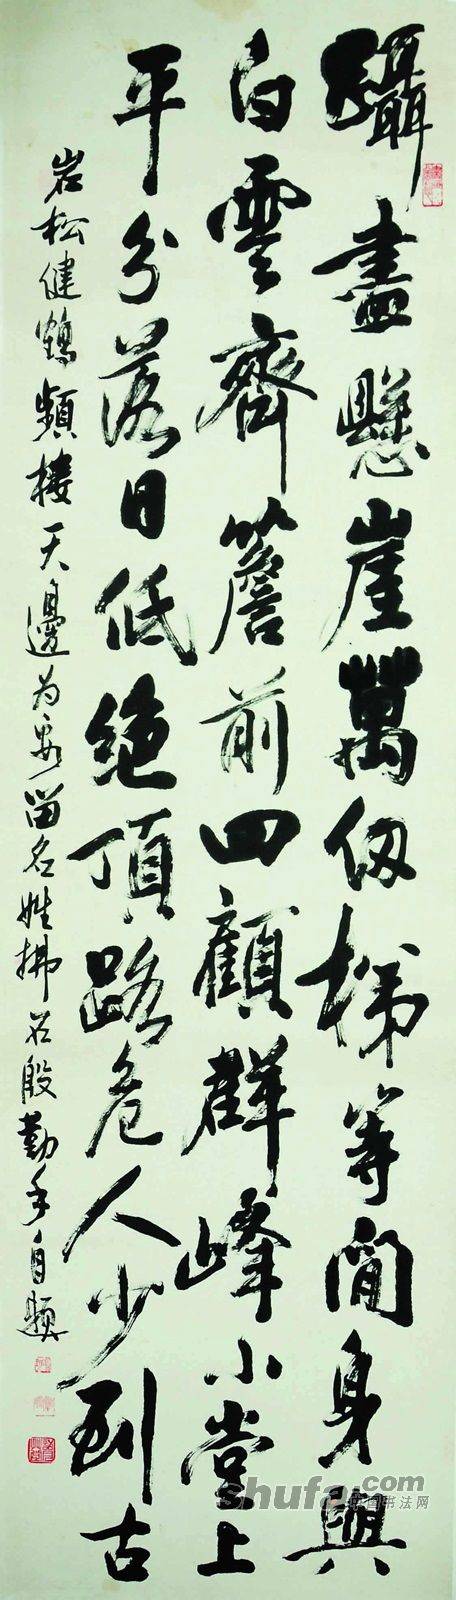 躡盡懸崖萬仞梯等閒身與
白雲齊簷前四顧群峰小堂上
平分落日低絶頂路危人少到古
岩松健鶴頻棲天邊為要留名姓拂石殷勤手自題
shufa.com
中国书法网